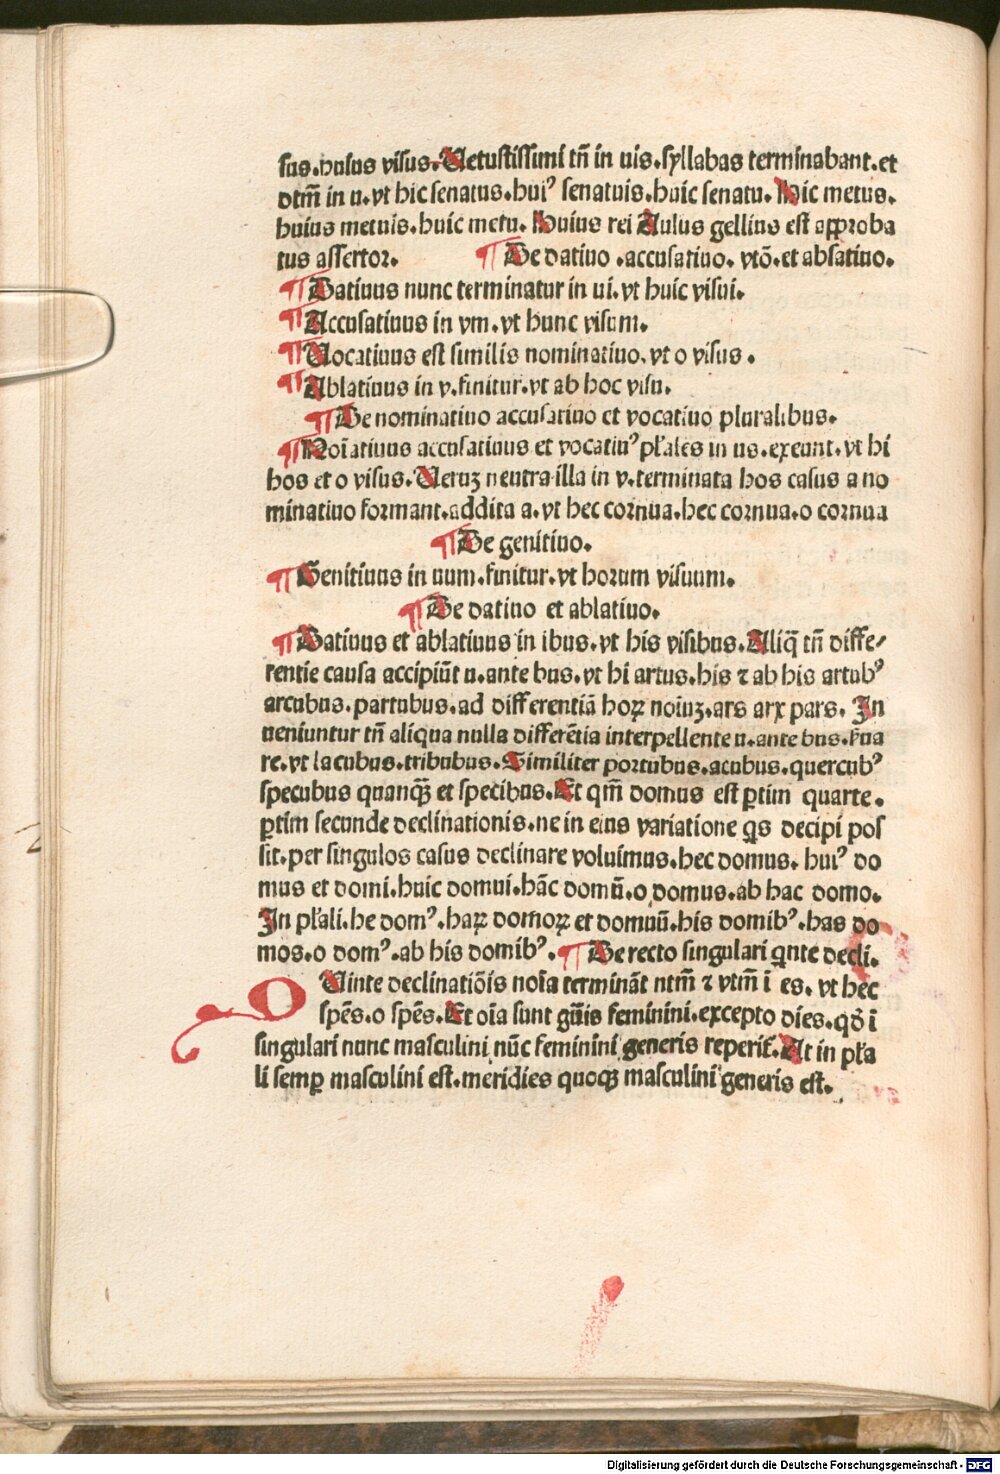 sus.huius visus. Uetustissimi tñ in uis.syllabas terminabant.et
dtm̃ in u.vt hic senatus.huiꝰ senatuis.huic senatu. Hic metus.
huius metuis.huic metu. Huius rei Aulus gellius est approba
tus assertor. ¶ De datiuo .accusatiuo. vtõ.et ablatiuo.
¶ Datiuus nunc terminatur in ui.vt huic visui.
¶ Accusatiuus in vm.vt hunc visum.
¶ Uocatiuus est similis nominatiuo.vt o visus .
¶ Ablatiuus in v.finitur.vt ab hoc visu.
¶ De nominatiuo accusatiuo et vocatiuo pluralibus.
¶ Noĩatiuus accusatiuus et vocatiuꝰ pl̃ales in us.exeunt.vt hi
hos et o visus. Ueruʒ neutra illa in v.terminata hos casus a no
minatiuo formant.addita a.vt hec cornua.hec cornua.o cornua
¶ De genitiuo.
¶ Genitiuus in uum.finitur.vt horum visuum.
¶ De datiuo et ablatiuo.
¶ Datiuus et ablatiuus in ibus.vt his visibus. Aliq̃ tñ diffe⸗
rentie causa accipiũt u.ante bus.vt hi artus.his ⁊ ab his artubꝰ
arcubus.partubus.ad differentiã hoꝝ noĩuʒ.ars arx pars. In
ueniuntur tñ aliqua nulla differẽtia interpellente u.ante bus.ẜua
re.vt lacubus.tribubus. Similiter portubus.acubus.quercubꝰ
specubus quanqꝫ̃ et specibus. Et qm̃ domus est ꝑtim quarte.
ꝑtim secunde declinationis.ne in eius variatione qͥs decipi pos
sit.per singulos casus declinare voluimus.hec domus. huiꝰ do
mus et domi.huic domui.hãc domũ.o domus.ab hac domo.
In pl̃ali.he domꝰ.haꝝ domoꝝ et domuũ.his domibꝰ.has do
mos.o domꝰ.ab his domibꝰ. ¶ De recto singulari qͥnte decli.
QUinte declinatiõis noĩa terminãt ntm̃ ⁊ vtm̃ ĩ es. vt hec
spẽs.o spẽs. Et oĩa sunt gñis feminini.excepto dies.qď ĩ
singulari nunc masculini nũc feminini generis reperiť. At in pl̃a
li semꝑ masculini est.meridies quoqꝫ masculini generis est.
Digitalisierung gefördert durch die Deutsche Forschungsgemeinschaft - DFG